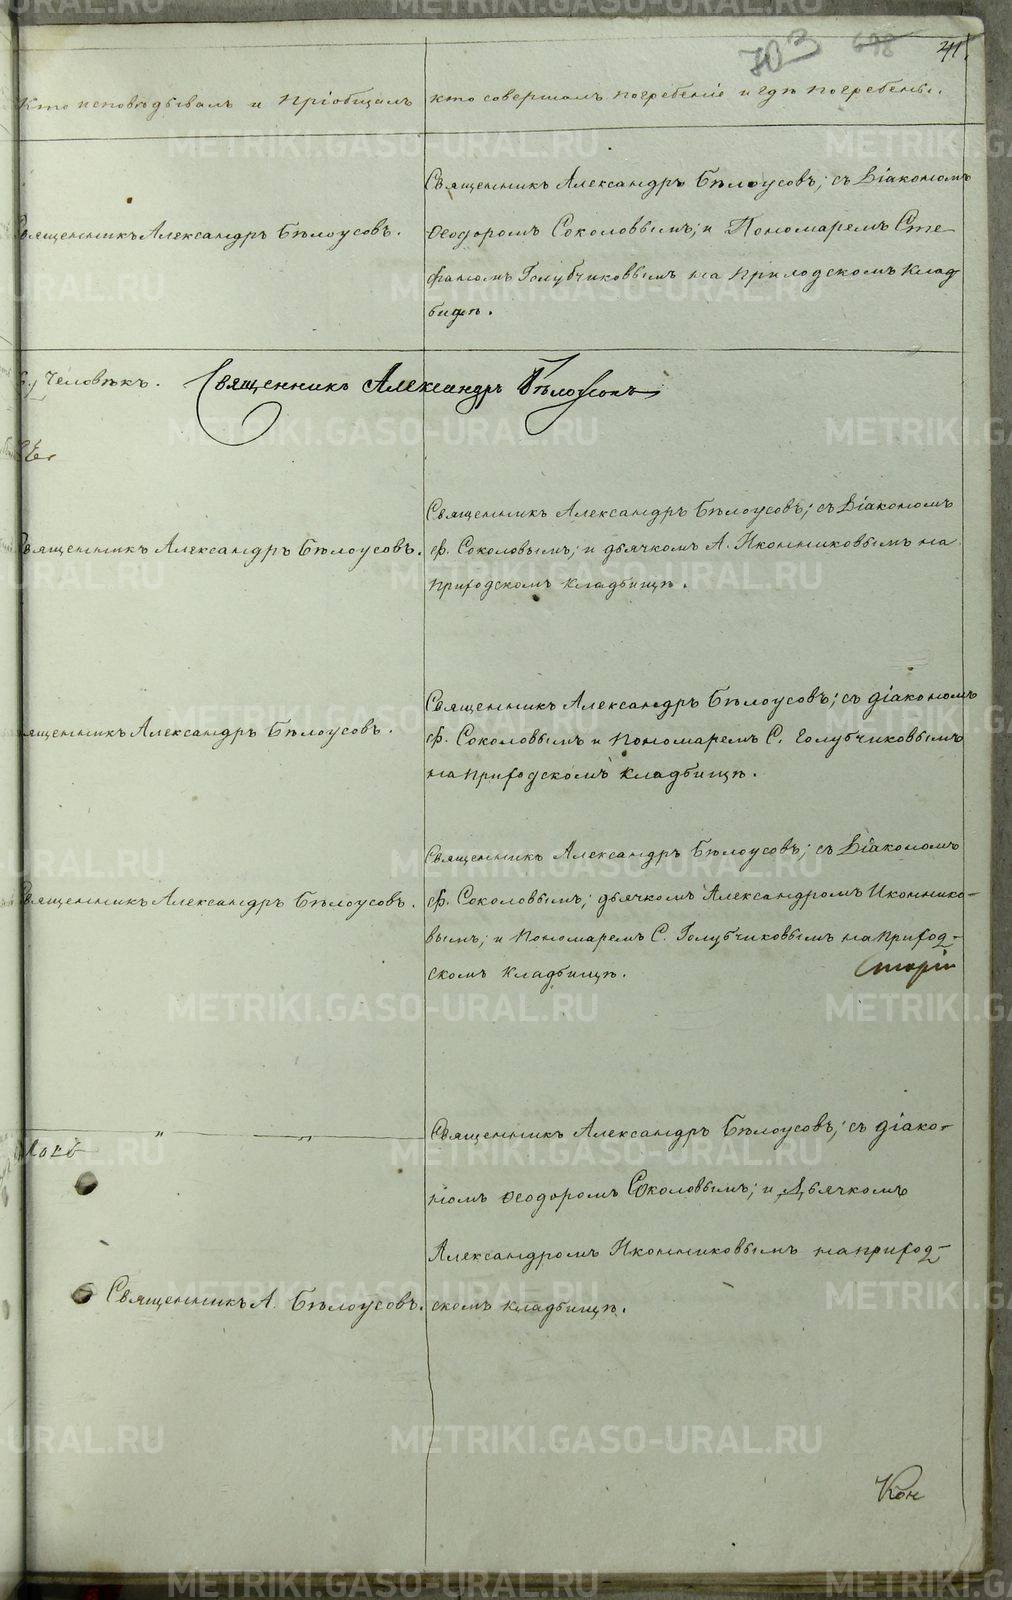 703 698 41.
Кто исповѣдывалъ и пріобщалъ
кто совершалъ погребеніе и гдѣ погребены.
Священникъ Александръ Бѣлоусовъ.
Священникъ Александръ Бѣлоусовъ; съ Діакономъ
Ѳеодоромъ Соколовымъ; и Пономаремъ Сте-
фаномъ Голубчиковымъ на приходскомъ клад
бищѣ.
Человѣкъ. Священникъ Александръ Бѣлоусовъ
Священникъ Александръ Бѣлоусовъ.
Священникъ Александръ Бѣлоусовъ; съ Діакономъ
Ѳ. Соколовымъ; и дьячкомъ А. Иконниковымъ на
приходскомъ кладбищѣ.
священникъ Александръ Бѣлоусовъ.
Священникъ Александръ Бѣлоусовъ; съ діакономъ
Ѳ. Соколовымъ и пономаремъ С. Голубчиковымъ
на приходскомъ кладбищѣ.
Священникъ Александръ Бѣлоусовъ.
Священникъ Александръ Бѣлоусовъ; съ Діакономъ
Ѳ. Соколовымъ; дьячкомъ Александромъ Иконнико-
вымъ; и Пономаремъ С. Голубчиковымъ на приход-
скомъ кладбищѣ.
" "
Священникъ Александръ Бѣлоусовъ; съ діако-
номъ Ѳеодоромъ Соколовымъ; и Дьячкомъ
Александромъ Иконниковымъ на приход-
Священникъ А. Бѣлоусовъ.
скомъ кладбищѣ.
METRIKI.GASO-URAL.RU